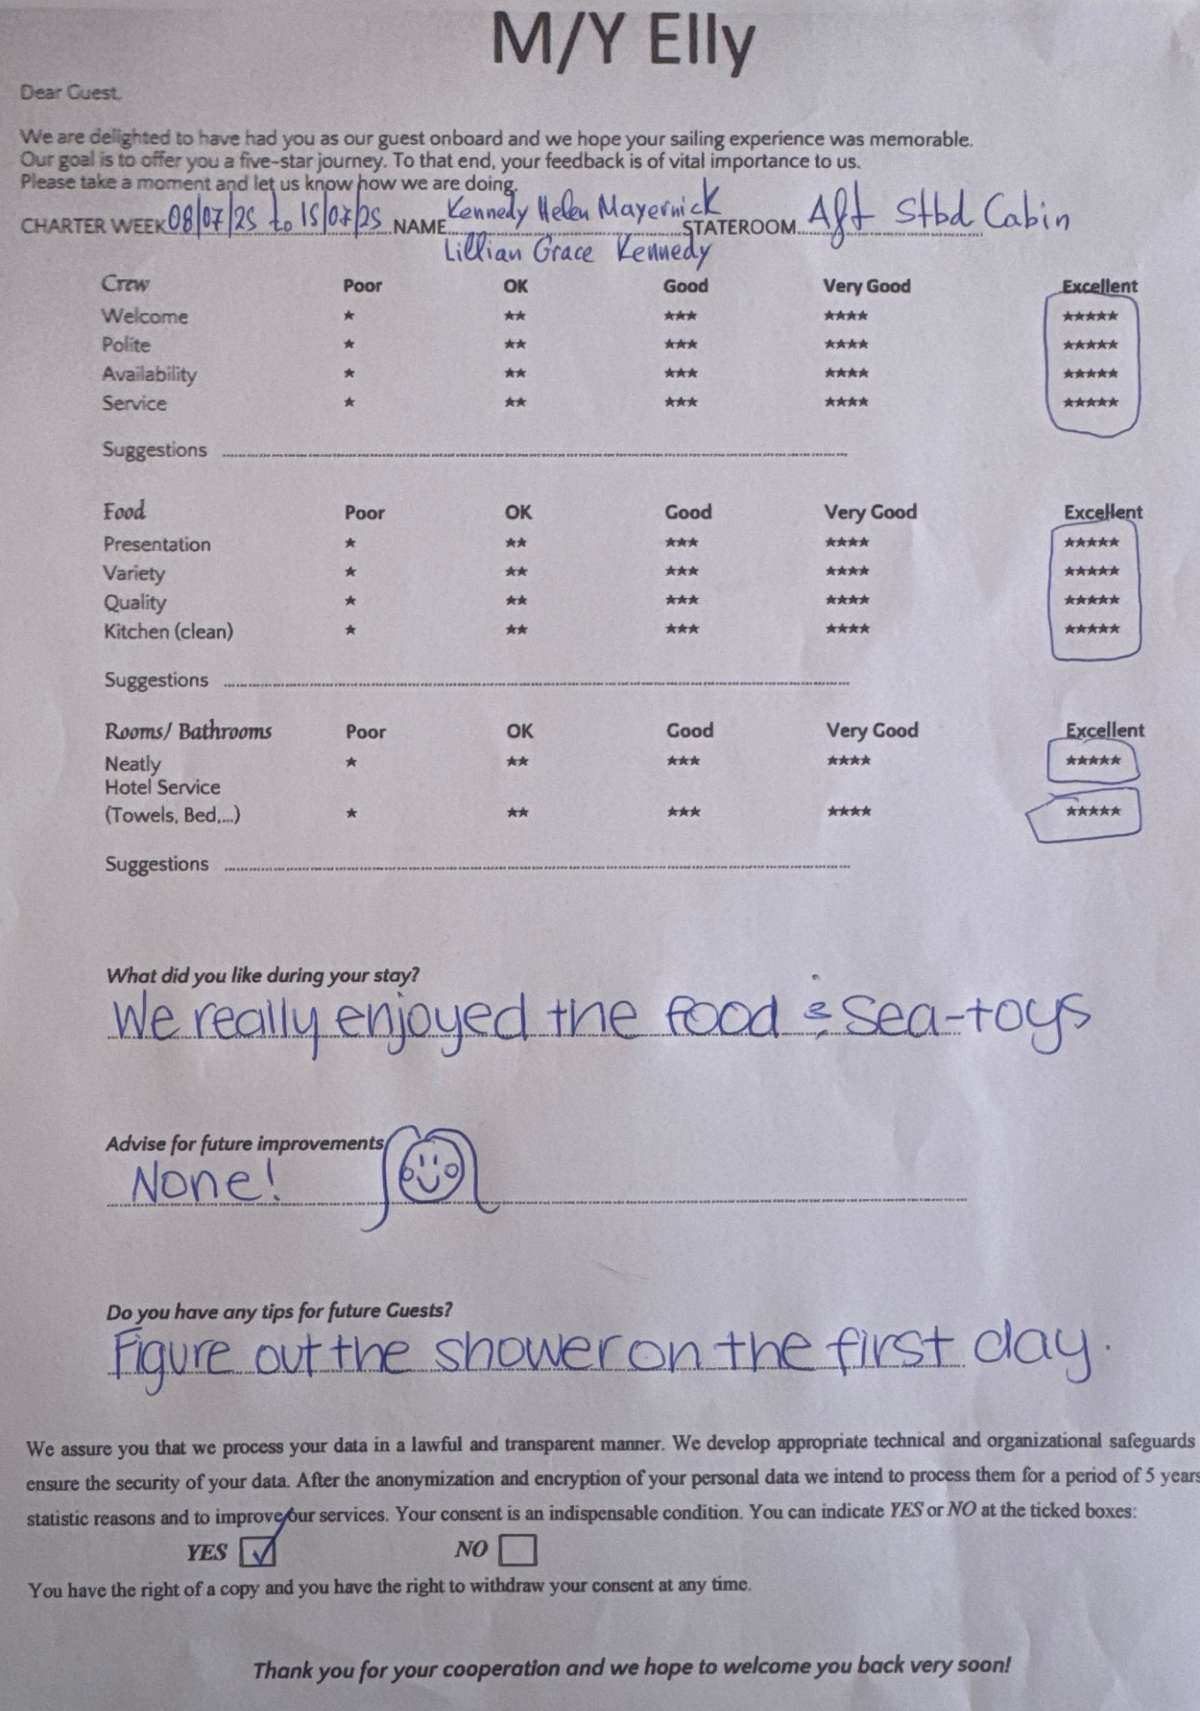 M/Y Elly
Dear Guest,
We are delighted to have had you as our guest onboard and we hope your sailing experience was memorable.
Our goal is to offer you a five-star journey. To that end, your feedback is of vital importance to us.
Please take a moment and let us know how we are doing.
CHARTER WEEK 08/07/25 to 15/07/25 NAME Kennedy Helen Mayernick STATEROOM Aft Stbd Cabin
Lillian Grace Kennedy
Crew Poor OK Good Very Good Excellent
Welcome ★ ★★ ★★★ ★★★★ ★★★★★
Polite ★ ★★ ★★★ ★★★★ ★★★★★
Availability ★ ★★ ★★★ ★★★★ ★★★★★
Service ★ ★★ ★★★ ★★★★ ★★★★★
Suggestions
Food Poor OK Good Very Good Excellent
Presentation ★ ★★ ★★★ ★★★★ ★★★★★
Variety ★ ★★ ★★★ ★★★★ ★★★★★
Quality ★ ★★ ★★★ ★★★★ ★★★★★
Kitchen (clean) ★ ★★ ★★★ ★★★★ ★★★★★
Suggestions
Rooms/ Bathrooms Poor OK Good Very Good Excellent
Neatly ★ ★★ ★★★ ★★★★ ★★★★★
Hotel Service
(Towels, Bed,...) ★ ★★ ★★★ ★★★★ ★★★★★
Suggestions
What did you like during your stay?
We really enjoyed the food & sea-toys
Advise for future improvements
None!
Do you have any tips for future Guests?
Figure out the shower on the first day.
We assure you that we process your data in a lawful and transparent manner. We develop appropriate technical and organizational safeguards
ensure the security of your data. After the anonymization and encryption of your personal data we intend to process them for a period of 5 years
statistic reasons and to improve our services. Your consent is an indispensable condition. You can indicate YES or NO at the ticked boxes:
YES NO
You have the right of a copy and you have the right to withdraw your consent at any time.
Thank you for your cooperation and we hope to welcome you back very soon!